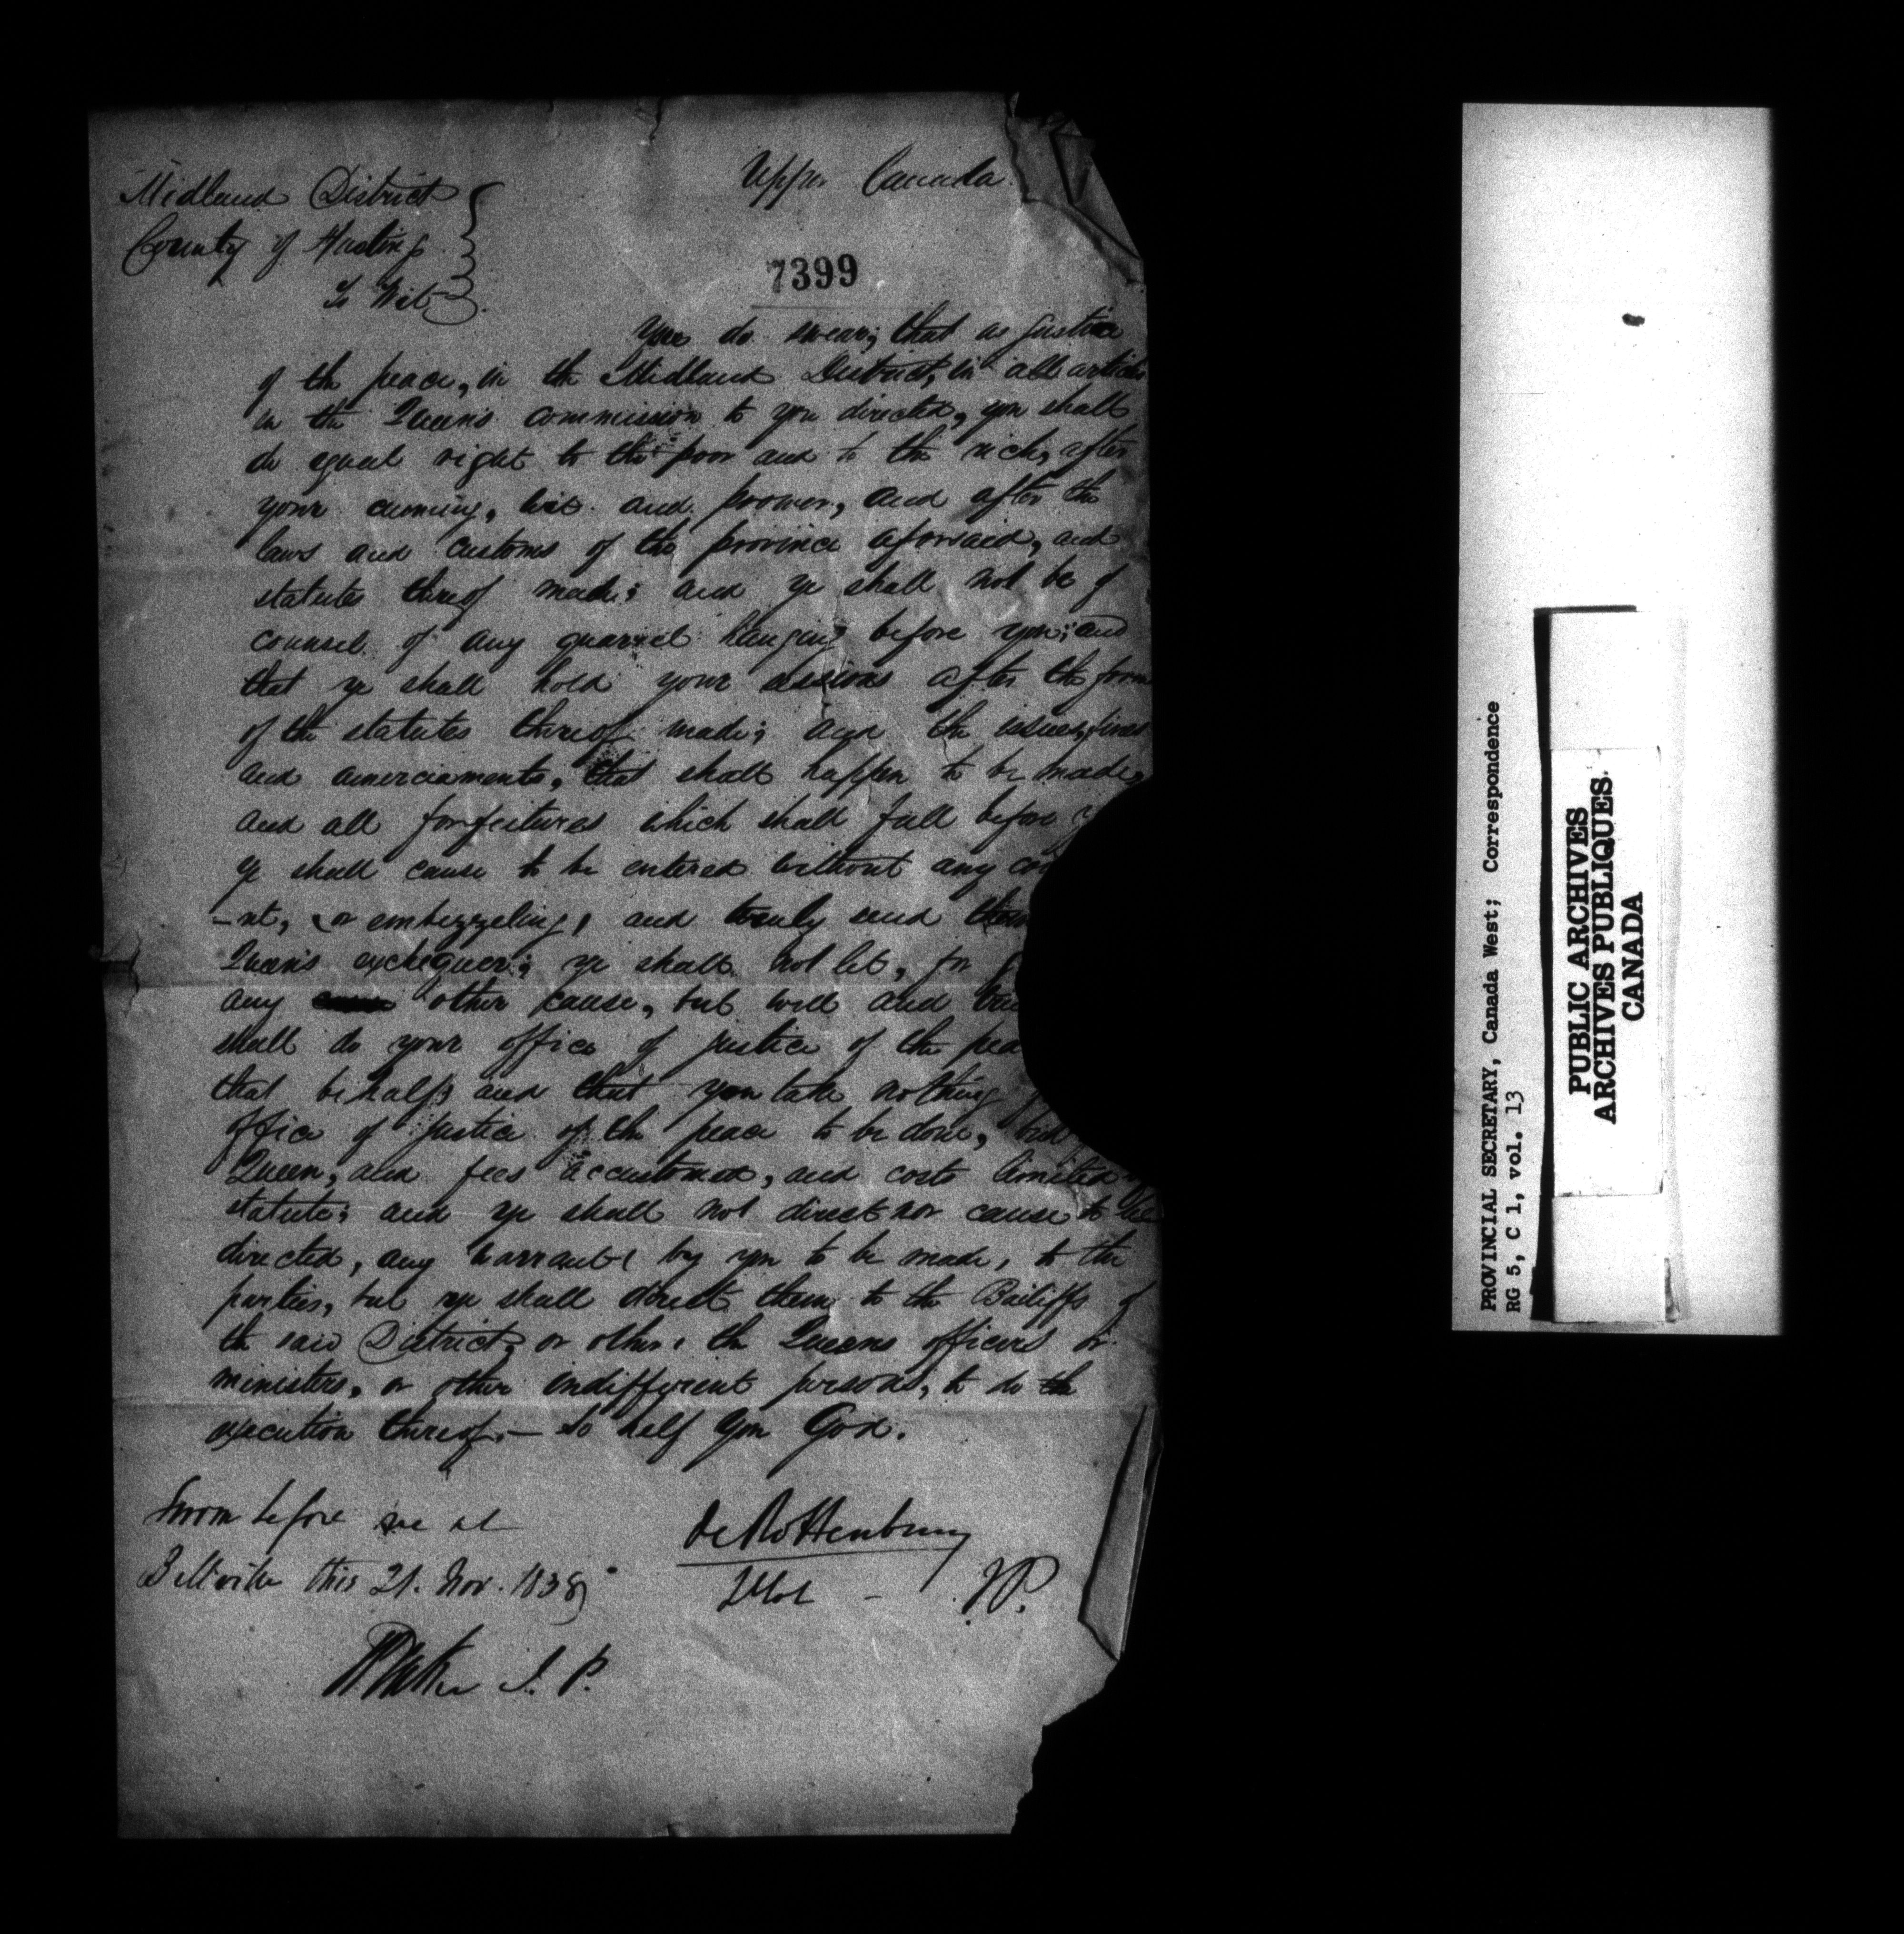 Upper Canada
Midland District
County of Hastings
To Wit
7399
You do swear, that as Justice
of the peace, in the Midland District, in all articles
in the Queen's commission to you directed, you shall
do equal right to the poor and to the rich, after
your cunning, wit and power, and after the
laws and customs of the province aforesaid, and
statutes thereof made; and ye shall not be of
counsel of any quarrel hanging before you; and
that ye shall hold your sessions after the form
of the statutes thereof made; and the issues, fines
and amerciaments, that shall happen to be made,
and all forfeitures which shall fall before
ye shall cause to be entered without any con
-nt, or embezzeling, and truly send them
Queen's exchequer; ye shall not let, for
any other cause, but well and
shall do your office of justice of the pea
that behalf; and that you take nothing
office of justice of the peace to be done, but
Queen, and fees accustomed, and costs limited
statute; and ye shall not direct nor cause to be
directed, any warrant by you to be made, to the
parties, but ye shall direct them to the Bailiffs of
the said District, or other the Queens officers or
ministers, or other indifferent persons, to do the
execution thereof.— So help you God.
Sworn before me at
Bellville this 21. Nov. 1838
de Rottenburg
J.P.
J. P.
PROVINCIAL SECRETARY, Canada West; Correspondence
RG 5, C 1, vol. 13
PUBLIC ARCHIVES
ARCHIVES PUBLIQUES
CANADA